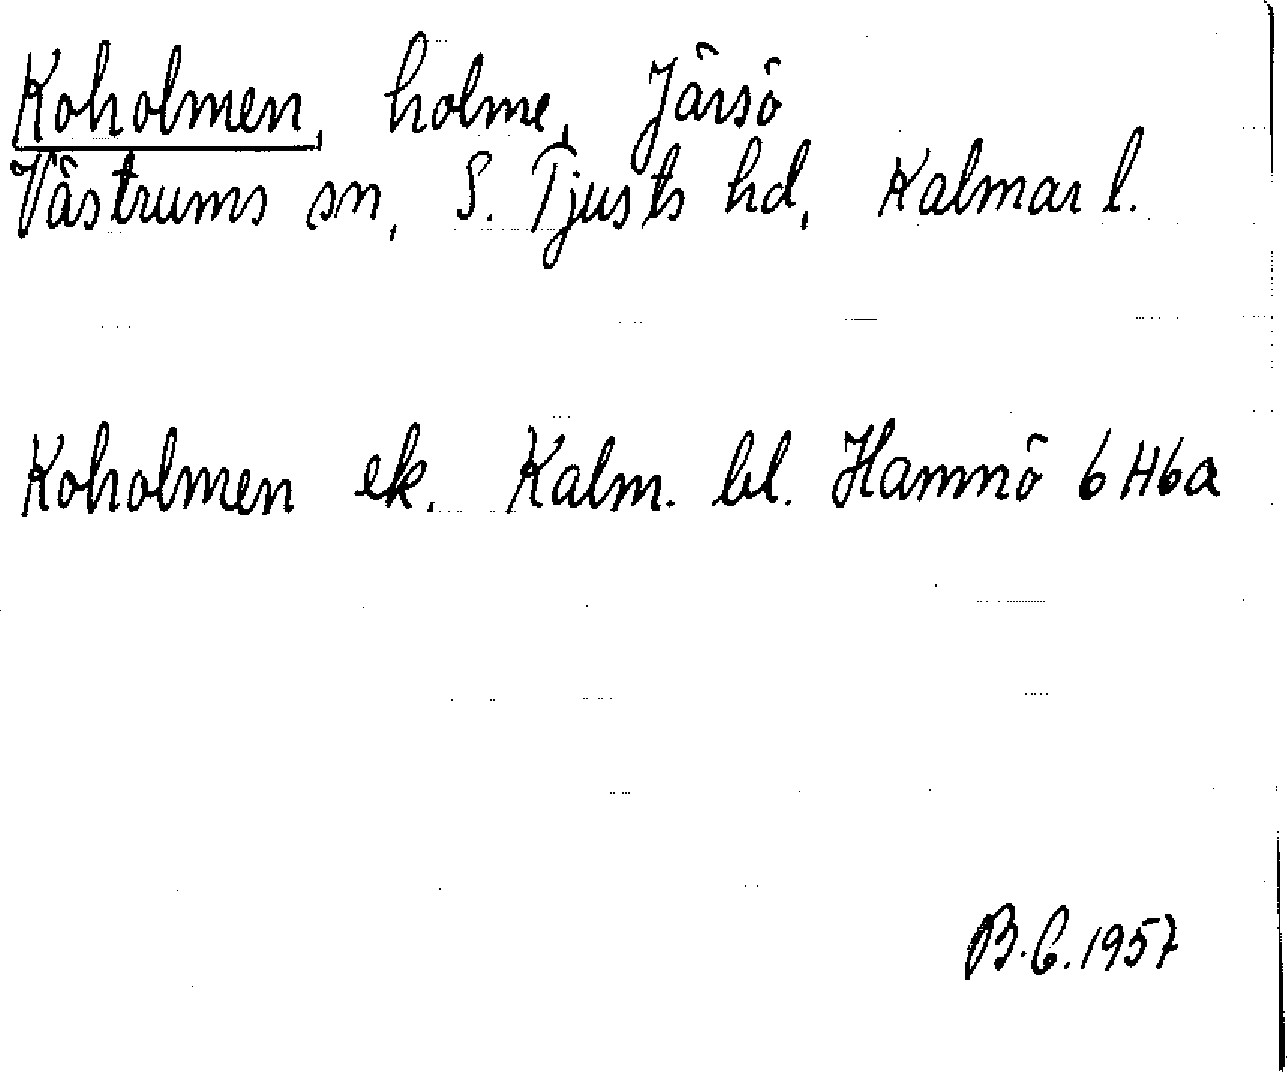 Koholmen, holme, Järsö
Västrums sn, S. Tjusts hd, Kalmar l.
Koholmen ek. Kalm. bl. Hamnö 6H6a
B.G. 1957